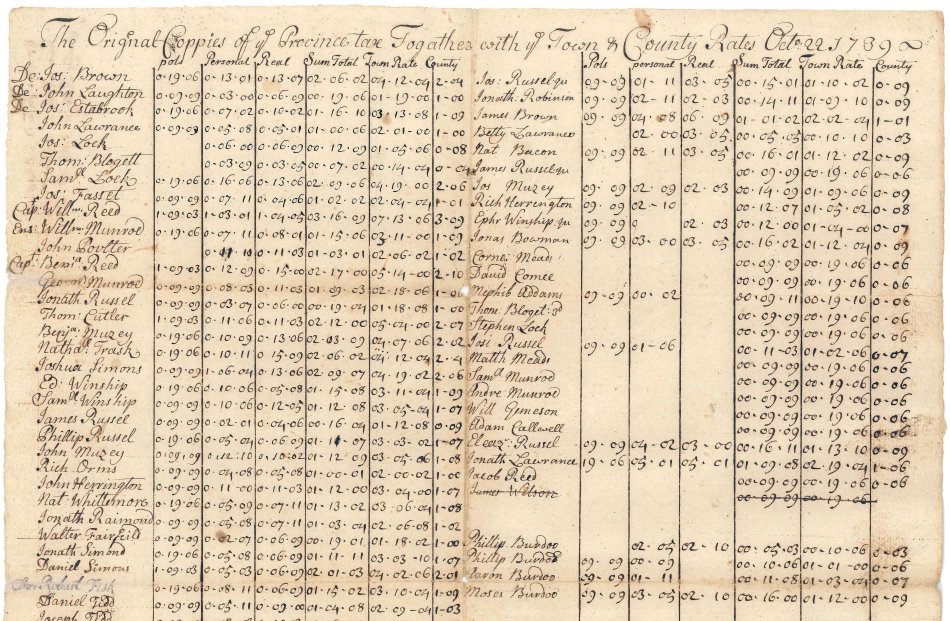 The Orignal Coppies of ye Province tax Togather with ye Town & County Rates Octor 22 1739
pols Personal Real Sum Total Town Rate County Pols personal Real Sum Total Town Rate County
De: Jos: Brown 0·19·06 0·13·01 0·13·07 02·06·02 04·12·04 2·04 Jos: Russel qu 09·09 01·11 03·05 00·15·01 01·10·02 0·09
De: John Laughton 0·09·09 0·03·00 0·06·09 00·19·06 01·19·00 1·00 Jonath Robinson 09·09 02·11 02·03 00·14·11 01·09·10 0·09
De Jos: Estabrook 0·19·06 0·07·02 0·10·02 01·16·10 03·13·08 1·09 James Brown 09·09 04·08 06·09 01·01·02 02·02·04 1·01
John Lawrance 0·09·09 0·05·08 0·05·01 01·00·06 02·01·00 1·00 Betty Lawrance 02·00 03·05 00·05·05 00·10·10 0·03
Jos: Lock 0·06·00 0·06·09 00·12·09 01·05·06 0·08 Nat Bacon 09·09 02·11 03·05 00·16·01 01·12·00 0·09
Thom: Blogett 0·03·09 0·03·05 00·07·02 00·14·04 0·04 James Russel qu 00·09·09 00·19·06 0·06
Saml Lock 0·19·06 0·16·06 0·13·06 02·09·06 04·19·00 2·06 Jos Muzey 09·09 02·09 02·03 00·14·09 01·09·06 0·09
Jos: Fasset 0·09·09 0·07·11 0·04·06 01·02·02 02·04·04 1·01 Rich Herrington 09·09 02·10 00·12·07 01·05·02 0·08
Capt Willm Reed 1·09·03 1·03·01 1·04·05 03·16·09 07·13·06 3·09 Ephr Winship qu 09·09 0 02·03 00·12·00 01·04·00 0·07
Ens: Willm Munrod 0·19·06 0·07·11 0·08·01 01·15·06 02·11·00 1·09 Jonas Bowman 09·09 03·00 03·05 00·16·02 01·12·04 0·09
John Poulter 0·11·03 01·02·06 02·06·02 1·02 Corne: Mead 00·09·09 00·19·06 0·06
Capt: Benja Reed 1·09·03 0·12·09 0·15·00 02·17·00 05·14·00 2·10 David Comee 00·09·09 00·19·06 0·06
George Munrod 0·09·09 0·08·03 0·11·03 01·09·03 02·18·06 1·09 Nephib Addams 09·09 00·02 00·09·11 00·19·10 0·06
Jonath Russel 0·09·09 0·03·07 0·06·00 00·19·04 01·18·08 1·00 Thom: Bloget: 3d 00·09·09 00·19·06 0·06
Thom: Cutler 1·09·03 0·11·06 0·11·03 02·12·00 05·04·00 2·07 Stephen Lock 00·09·09 00·19·06 0·06
Benja: Muzey 0·19·06 0·10·09 0·13·06 02·03·09 04·07·06 2·02 Josi Russel 09·09 01·06 00·11·03 01·02·06 0·07
Nathal Trask 0·19·06 0·10·11 0·15·09 02·06·02 04·12·04 2·4 Matth Mead 00·09·09 00·19·06 0·06
Joshua Simons 0·09·09 1·06·04 0·13·06 02·09·07 04·19·02 2·06 Saml Munrod 00·09·09 00·19·06 0·06
Ed: Winship 0·19·06 0·10·06 0·05·08 01·15·08 03·11·04 1·09 Andre Munrod 00·09·09 00·19·06 0·06
Saml Winship 0·09·09 0·10·06 0·12·05 01·12·08 03·05·04 1·07 Will Gimeson 00·09·09 00·19·06 0·06
James Russel 0·09·09 0·02·01 0·04·06 00·16·04 01·12·08 0·09 Adam Callwell 00·09·09 00·19·06 0·06
Phillip Russel 0·19·06 0·05·04 0·06·09 01·11·07 03·03·02 1·07 Eleazr: Russel 09·09 04·02 03·00 00·16·11 01·13·10 0·09
John Muzey 0·09·09 0·12·10 0·10·02 01·12·09 03·05·06 1·08 Jonath Lawrance 19·06 05·01 05·01 01·09·08 02·19·04 1·06
Rich Orms 0·09·09 0·04·08 0·05·08 01·00·01 02·00·02 1·00 Jacob Reed 00·09·09 00·19·06 0·06
John Herrington 0·09·09 0·11·00 0·11·03 01·12·00 03·04·00 1·07 James Wilson 00·09·09 00·19·06
Nat Whittemore 0·19·06 0·05·09 0·07·11 01·13·02 03·06·04 1·08
Jonath Raimond 0·09·09 0·05·08 0·07·11 01·03·04 02·06·08 1·02
Walter Fairfild 0·09·09 0·02·07 0·06·09 00·19·01 01·18·02 1·00 Phillip Burdoo 02·05 02·10 00·05·03 00·10·06 0·03
Jonath Simond 0·19·06 0·05·08 0·06·09 01·11·11 03·03·10 1·07 Phillip Burdoo 09·09 00·09 00·10·06 01·01·00 0·06
Daniel Simons 0·09·09 0·05·03 0·06·09 02·01·03 04·02·06 2·01 Aaron Burdoo 09·09 01·11 00·11·08 01·03·04 0·07
Robert Fisk 0·19·06 0·08·11 0·06·09 01·15·02 03·10·04 1·09 Moses Burdoo 09·09 03·05 02·10 00·16·00 01·12·00 0·09
Daniel 0·09·09 0·05·11 0·09·00 01·04·08 02·09·04 1·03
Joseph